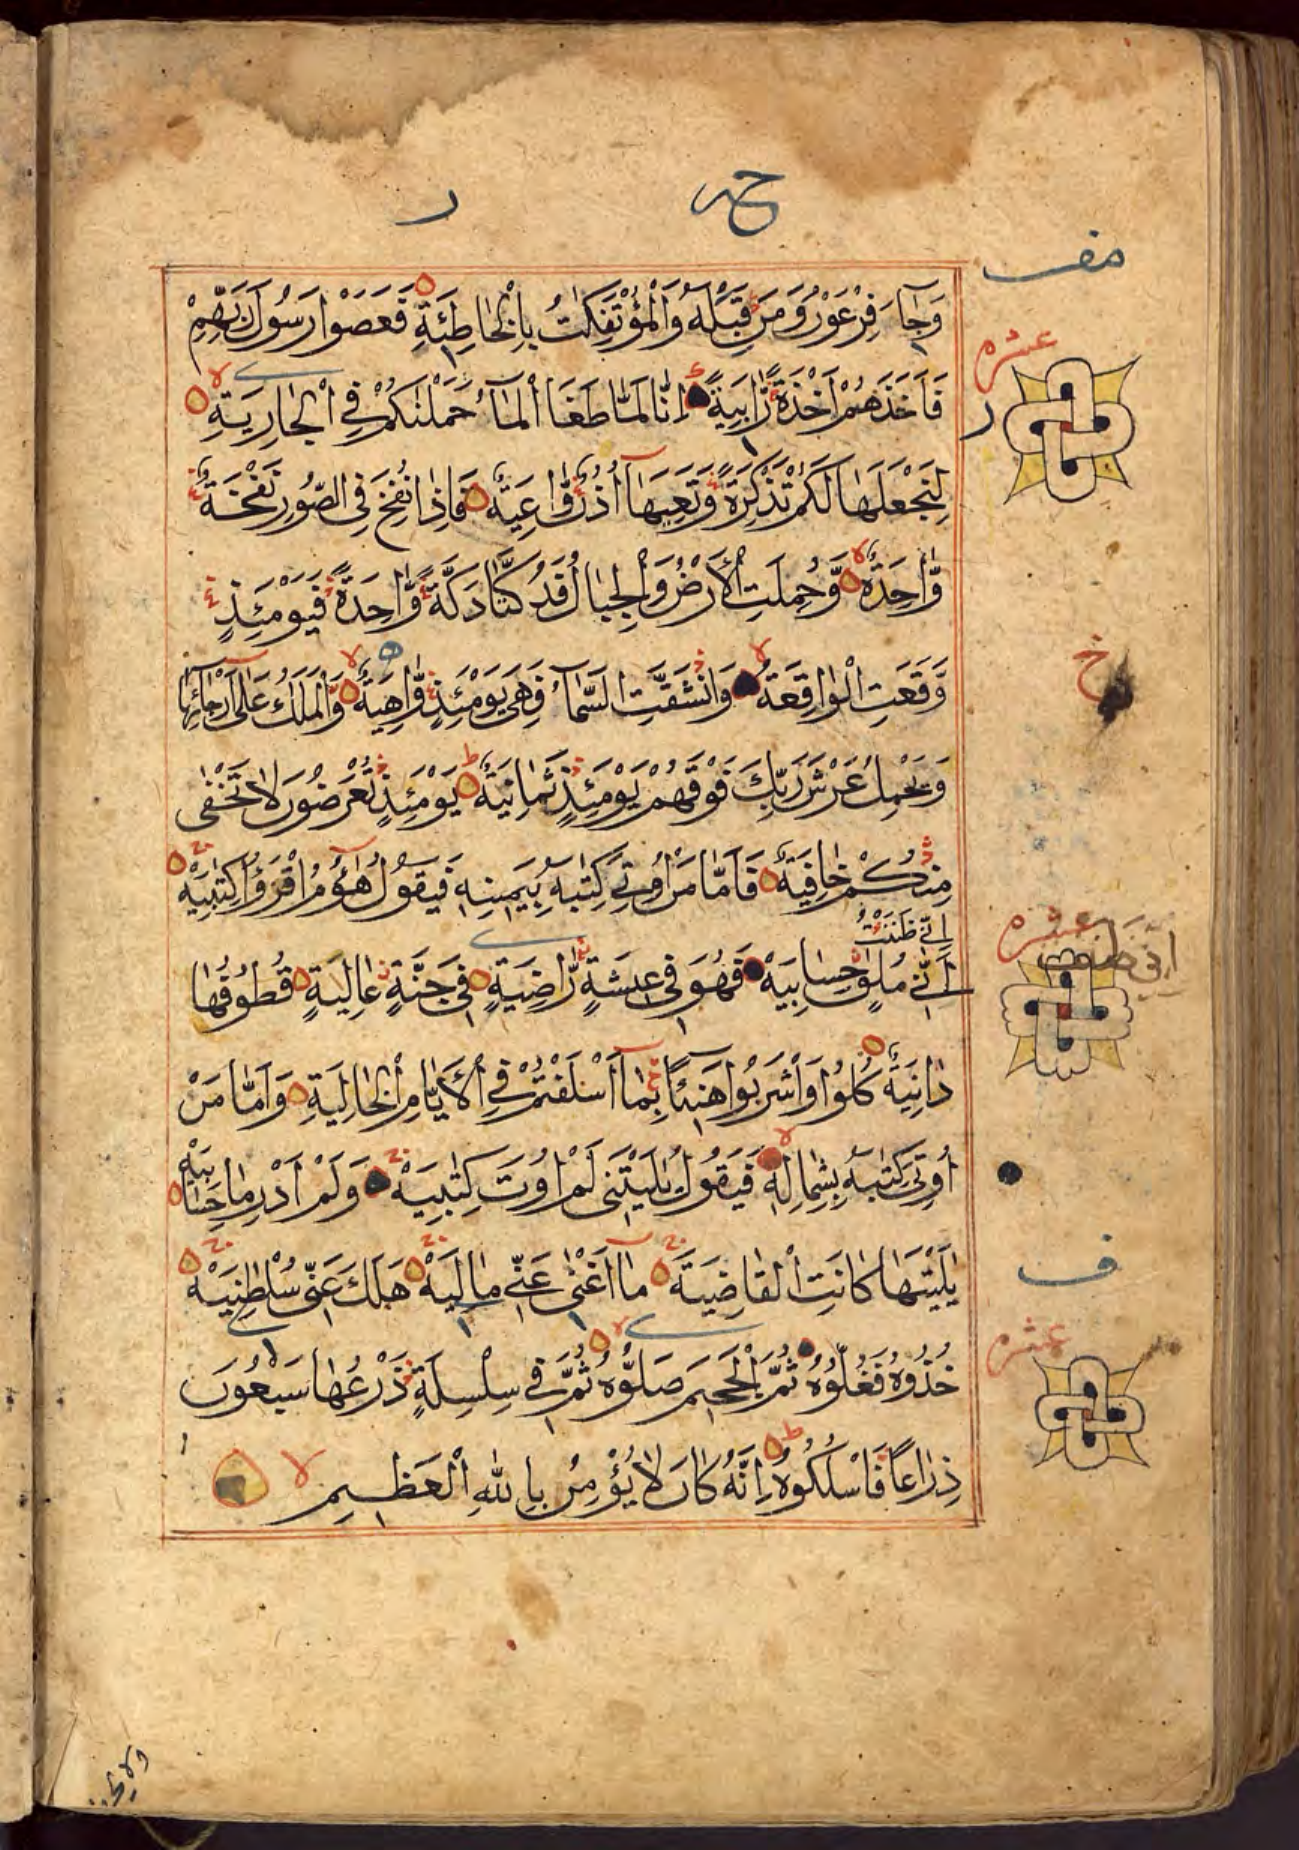 حمر
مف
وَجَاءَ فِرْعَوْنُ وَمَنْ قَبْلَهُ وَالْمُؤْتَفِكٰتُ بِالْخَاطِئَةِ فَعَصَوْا رَسُولَ رَبِّهِمْ
عشره
فَاَخَذَهُمْ اَخْذَةً رَّابِيَةً اِنَّا لَمَّا طَغَا الْمَآءُ حَمَلْنٰكُمْ فِي الْجَارِيَةِ
لِنَجْعَلَهَا لَكُمْ تَذْكِرَةً وَّتَعِيَهَآ اُذُنٌ وَّاعِيَةٌ فَاِذَا نُفِخَ فِي الصُّورِ نَفْخَةٌ
وَّاحِدَةٌ وَّحُمِلَتِ الْاَرْضُ وَالْجِبَالُ فَدُكَّتَا دَكَّةً وَّاحِدَةً فَيَوْمَئِذٍ
خ
وَقَعَتِ الْوَاقِعَةُ وَانْشَقَّتِ السَّمَآءُ فَهِيَ يَوْمَئِذٍ وَّاهِيَةٌ وَّالْمَلَكُ عَلٰٓى اَرْجَآئِهَا
وَيَحْمِلُ عَرْشَ رَبِّكَ فَوْقَهُمْ يَوْمَئِذٍ ثَمَانِيَةٌ يَوْمَئِذٍ تُعْرَضُونَ لَا تَخْفٰى
مِنْكُمْ خَافِيَةٌ فَاَمَّا مَنْ اُوتِيَ كِتٰبَهُ بِيَمِينِهٖ فَيَقُولُ هَآؤُمُ اقْرَؤُا كِتٰبِيَهْ
اِنِّي ظَنَنْتُ
عشره
انى ظننت
اَنِّي مُلٰقٍ حِسَابِيَهْ فَهُوَ فِي عِيشَةٍ رَّاضِيَةٍ فِي جَنَّةٍ عَالِيَةٍ قُطُوفُهَا
دَانِيَةٌ كُلُوا وَاشْرَبُوا هَنِيْٓئًا بِمَآ اَسْلَفْتُمْ فِي الْاَيَّامِ الْخَالِيَةِ وَاَمَّا مَنْ
اُوتِيَ كِتٰبَهُ بِشِمَالِهٖ فَيَقُولُ يٰلَيْتَنِي لَمْ اُوتَ كِتٰبِيَهْ وَلَمْ اَدْرِ مَا حِسَابِيَهْ
ف
يٰلَيْتَهَا كَانَتِ الْقَاضِيَةَ مَآ اَغْنٰى عَنِّي مَالِيَهْ هَلَكَ عَنِّي سُلْطٰنِيَهْ
عشره
خُذُوهُ فَغُلُّوهُ ثُمَّ الْجَحِيمَ صَلُّوهُ ثُمَّ فِي سِلْسِلَةٍ ذَرْعُهَا سَبْعُونَ
ذِرَاعًا فَاسْلُكُوهُ اِنَّهُ كَانَ لَا يُؤْمِنُ بِاللّٰهِ الْعَظِيمِ